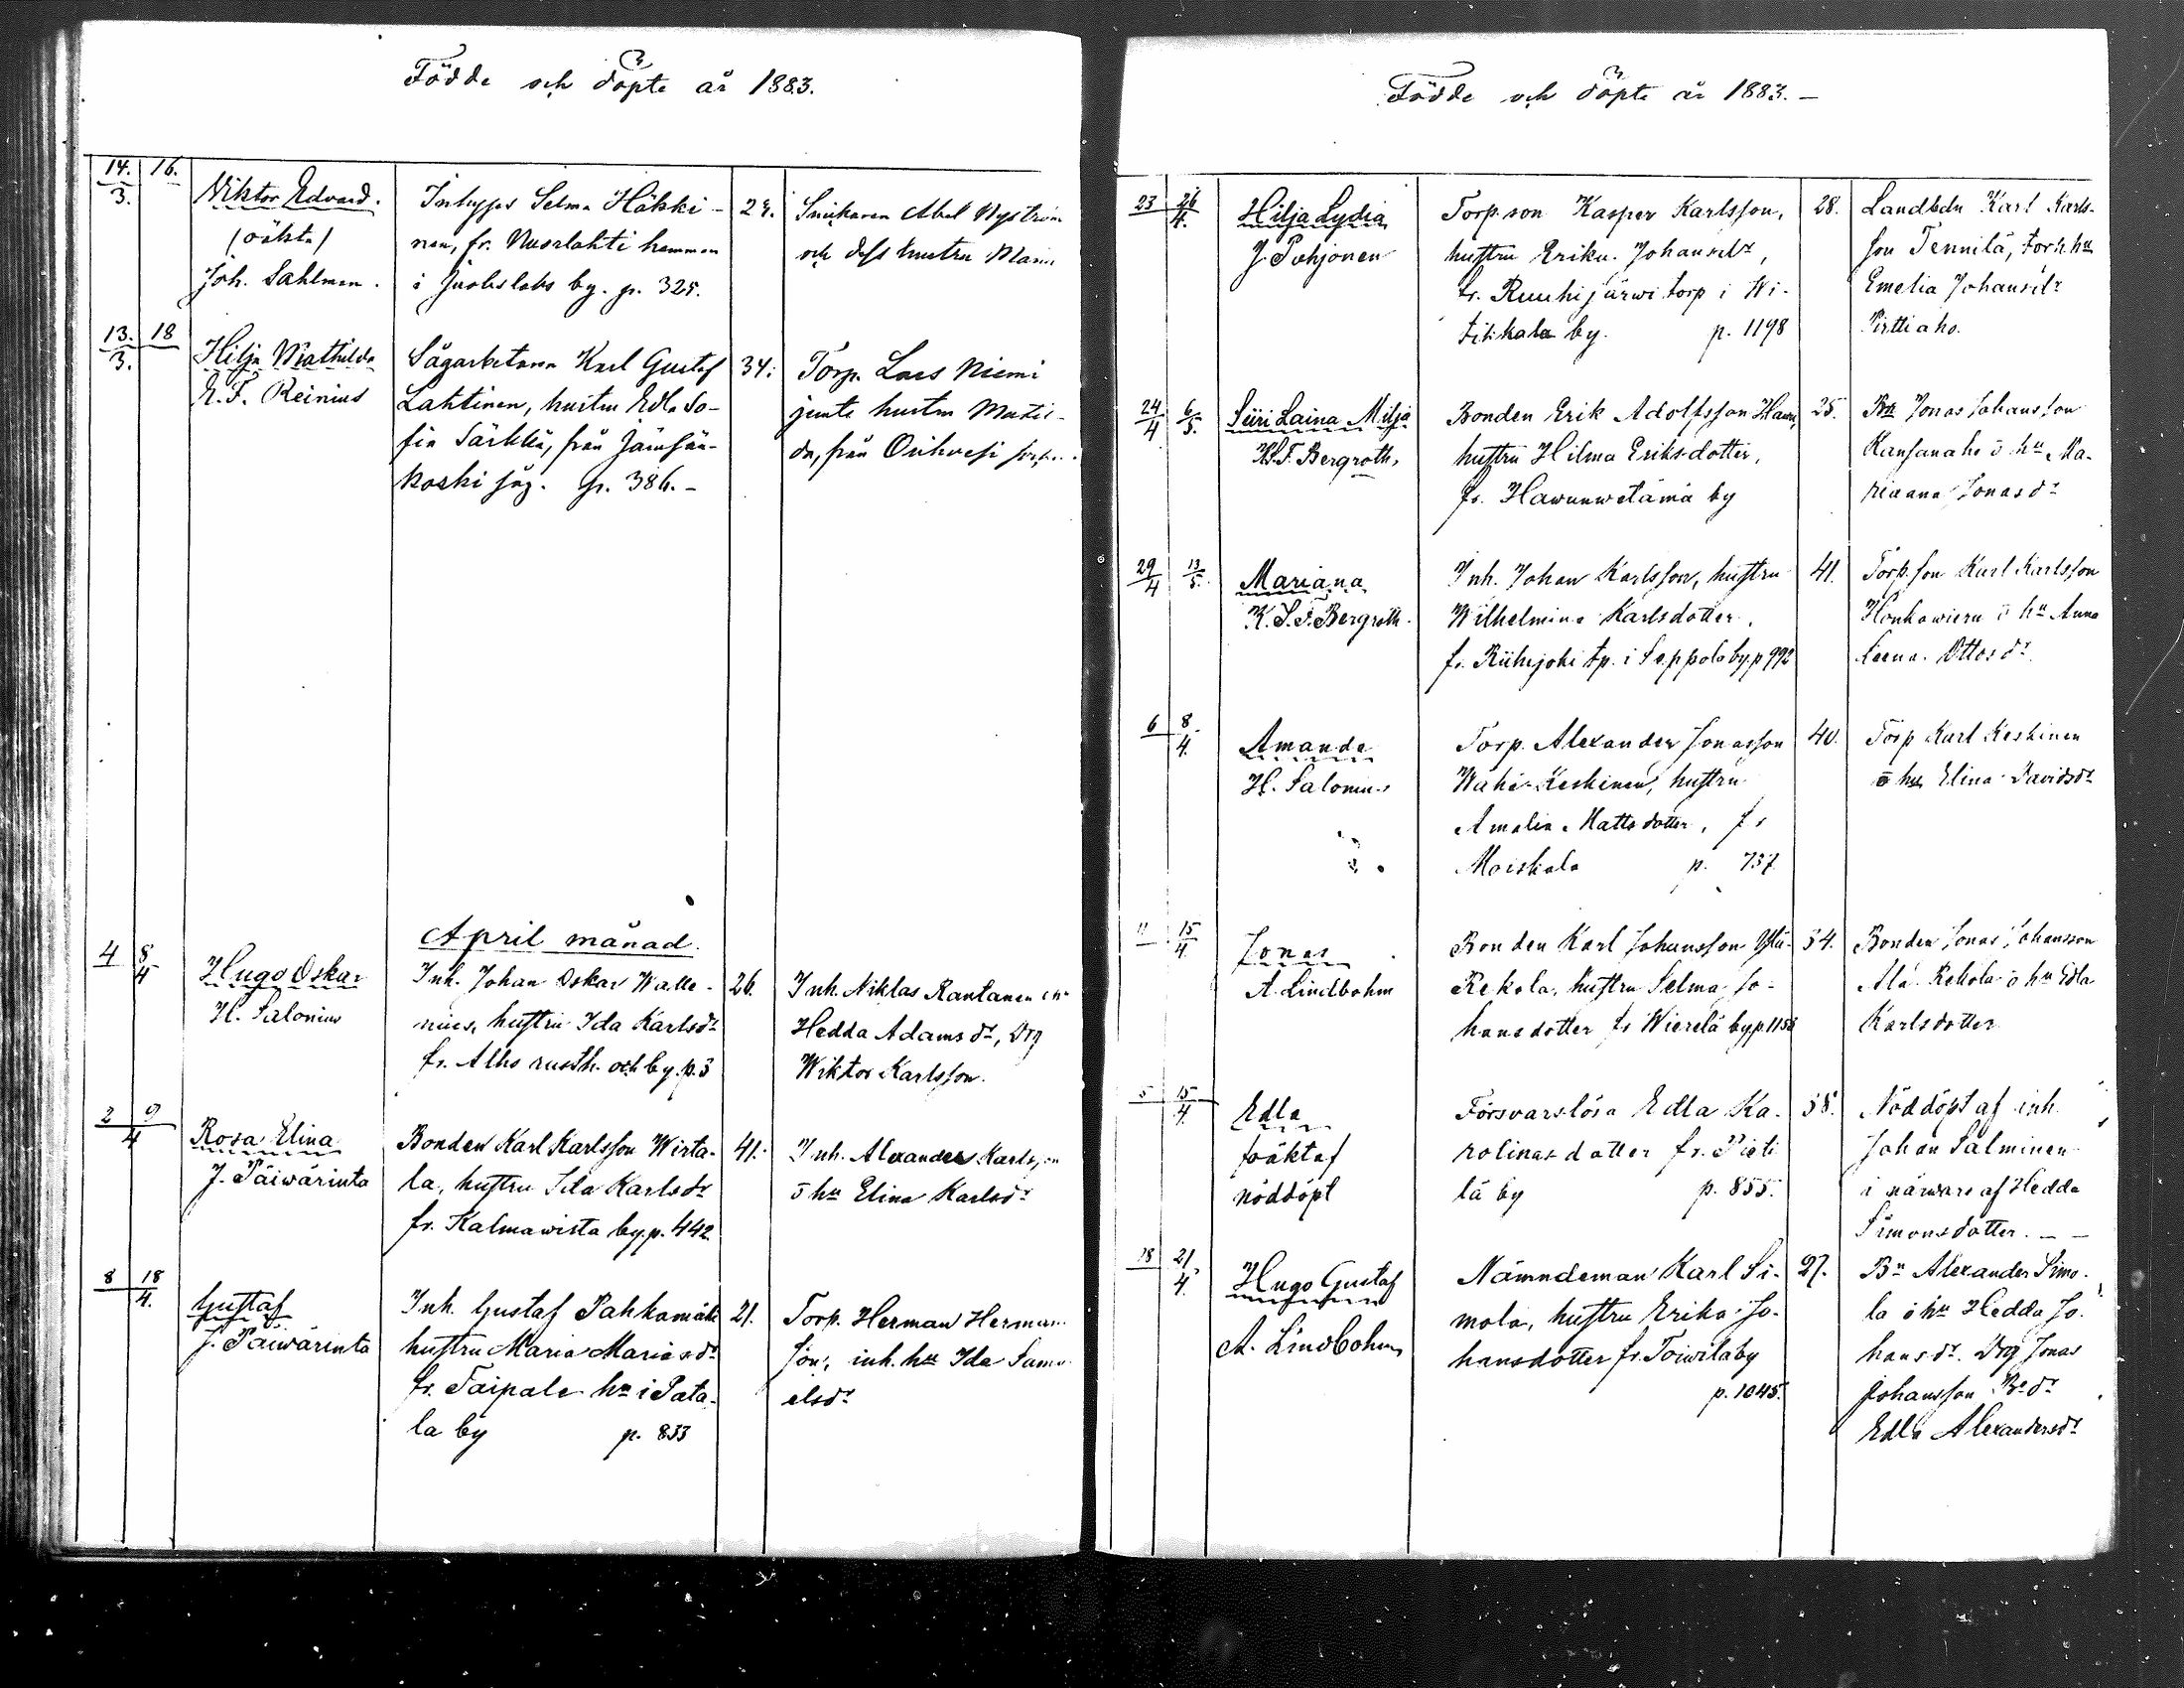 Födde och döpte år 1883.
14. 16.
3.
Viktor Edvard.
(oäkta)
Joh. Sahlman.
Inhyses Selma Häkki-
nen, fr. Nuorlahti hemman
i Juokslahs by. p. 325.
Snickaren Abel Nyström
och dess hustru Maria
13. 18
3.
Hilja Mathilda
K. F. Reinius
Sågarbetaren Karl Gustaf
Lahtinen, hustru Edla So-
fia Särkkä, från Jämsän-
koski såg. p. 386.-
34.
Torp. Lars Niemi
jemte hustru Matil-
da, från Orihvesi
April månad.
4 8
4
Hugo Oskar
H. Salonius
Inh. Johan Oskar Walle-
nius, hustru Ida Karlsdr
fr. Alho rusth. och by. p. 3
26.
Inh. Niklas Rantanen
Hedda Adamsdr, Drg
Wiktor Karlsson.
2 9
4
Rosa Elina
J. Päiwärinta
Bonden Karl Karlsson Wirta-
la, hustru Ida Karlsdr
fr. Kalmawirta by. p. 442
41.
Inh. Alexander Karlsson
o hu Elina Karlsdr
8 18
4.
Gustaf
J. Päiwärinta
Inh. Gustaf Pahkamäki
hustru Maria Mariasdr
fr. Taipale hn i Pata-
la by p. 833
21.
Torp. Herman Herman
son, inh. hu Ida Samu-
elsdr
Födde och döpte år 1883.-
23 26
4.
Hilja Lydia
J. Pohjonen
Torp.son Kasper Karlsson,
hustru Erika Johansdr,
fr. Ruuhijärwi torp i Wi-
tikkala by. p. 1198
28.
Landbdn Karl Karls-
son Tennilä, torp.hu
Emelia Johansdr
Pirttiaho.
24 6
4 5.
Siiri Laina Milja
K.S.F. Bergroth,
Bonden Erik Adolfsson Hawu,
hustru Hilma Eriksdotter,
fr. Hawunwetämä by
25.
Bn Jonas Johansson
Kansanaho o hu Ma-
riaana Jonasdr
29 13
4 5.
Mariana
K. S. F. Bergroth.
Inh. Johan Karlsson, hustru
Wilhelmina Karlsdotter,
fr. Riihijoki tp. i Seppola by. p 992
41.
Torp.son Karl Karlsson
Honkawieru o hu Anna
Leena Ottosdr.
6 8
4.
Amanda
H. Salonius
Torp. Alexander Jonasson
Wähä-Keskinen, hustru
Amalia Mattsdotter, fr
Moiskala p. 757
40.
Torp Karl Keskinen
o hu Elina Davidsdr
11 15
4.
Jonas
A. Lindbohm
Bonden Karl Johansson Yli-
Rekola, hustru Selma Jo-
hansdotter fr Wierelä by p. 1153
34.
Bonden Jonas Johansson
Ala-Rekola o hu Edla
Karlsdotter
5 15
4.
Edla
(oäkta)
nöddöpt
Försvarslösa Edla Ka-
rolinasdotter fr. Pieti
lä by p. 855.
38.
Nöddöpt af inh.
Johan Salminen
i närwaro af Hedda
Simonsdotter. - -
18 21
4.
Hugo Gustaf
A. Lindbohm
Nämndeman Karl Si-
mola, hustru Erika Jo-
hansdotter fr. Toiwila by
p. 1045.
27.
Bn Alexander Simo-
la o hu Hedda Jo-
hansdr. Drg Jonas
Johansson Bedr
Edla Alexandersdr